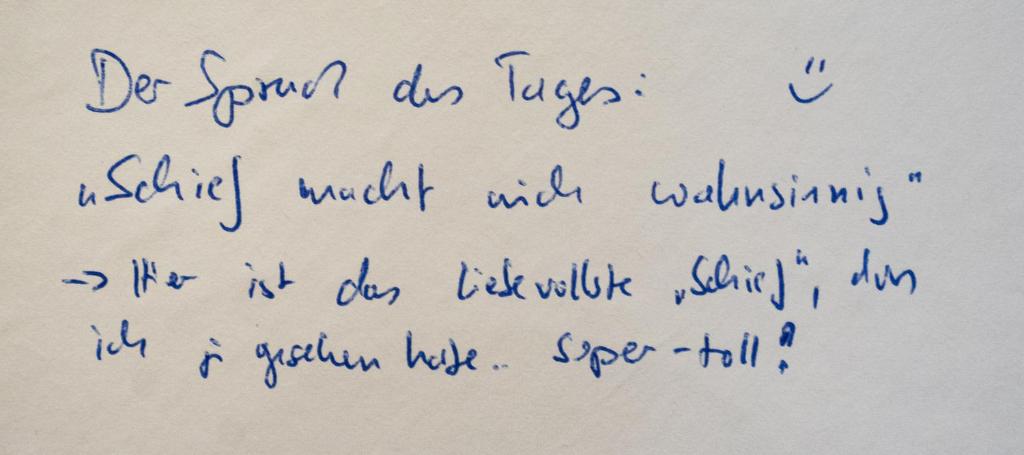 Der Spruch des Tages: ü
„Schief macht mich wahnsinnig"
→ Hier ist das liebevollste „Schief", das
ich je gesehen habe.. super-toll!